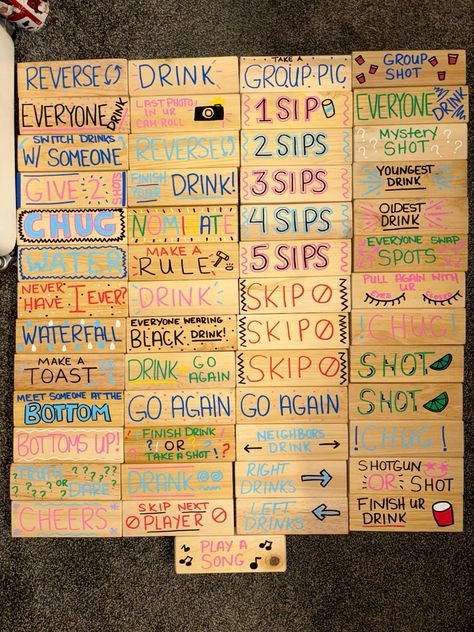 REVERSE
EVERYONE DRINK
SWITCH DRINKS
W/ SOMEONE
GIVE 2 SHOTS
CHUG
WATER
NEVER
HAVE I EVER?
WATERFALL
MAKE A
TOAST
MEET SOMEONE AT THE
BOTTOM
BOTTOMS UP!
TRUTH ????
???? OR DARE?
CHEERS
DRINK
LAST PHOTO
IN UR
CAM ROLL
REVERSE
FINISH
YOUR DRINK!
NOMINATE
MAKE A
RULE
DRINK
EVERYONE WEARING
BLACK DRINK!
DRINK GO
AGAIN
GO AGAIN
FINISH DRINK
? OR ?!
TAKE A SHOT?
DRANK
SKIP NEXT
PLAYER
TAKE A
GROUP PIC
1 SIP
2 SIPS
3 SIPS
4 SIPS
5 SIPS
SKIP
SKIP
SKIP
GO AGAIN
NEIGHBORS
DRINK
RIGHT
DRINKS
LEFT
DRINKS
GROUP
SHOT
EVERYONE DRINK
MYSTERY
SHOT
YOUNGEST
DRINK
OLDEST
DRINK
EVERYONE SWAP
SPOTS
PULL AGAIN WITH
UR
CLOSED
! CHUG !
SHOT
SHOT
! CHUG !
SHOTGUN
OR SHOT
FINISH UR
DRINK
PLAY A
SONG